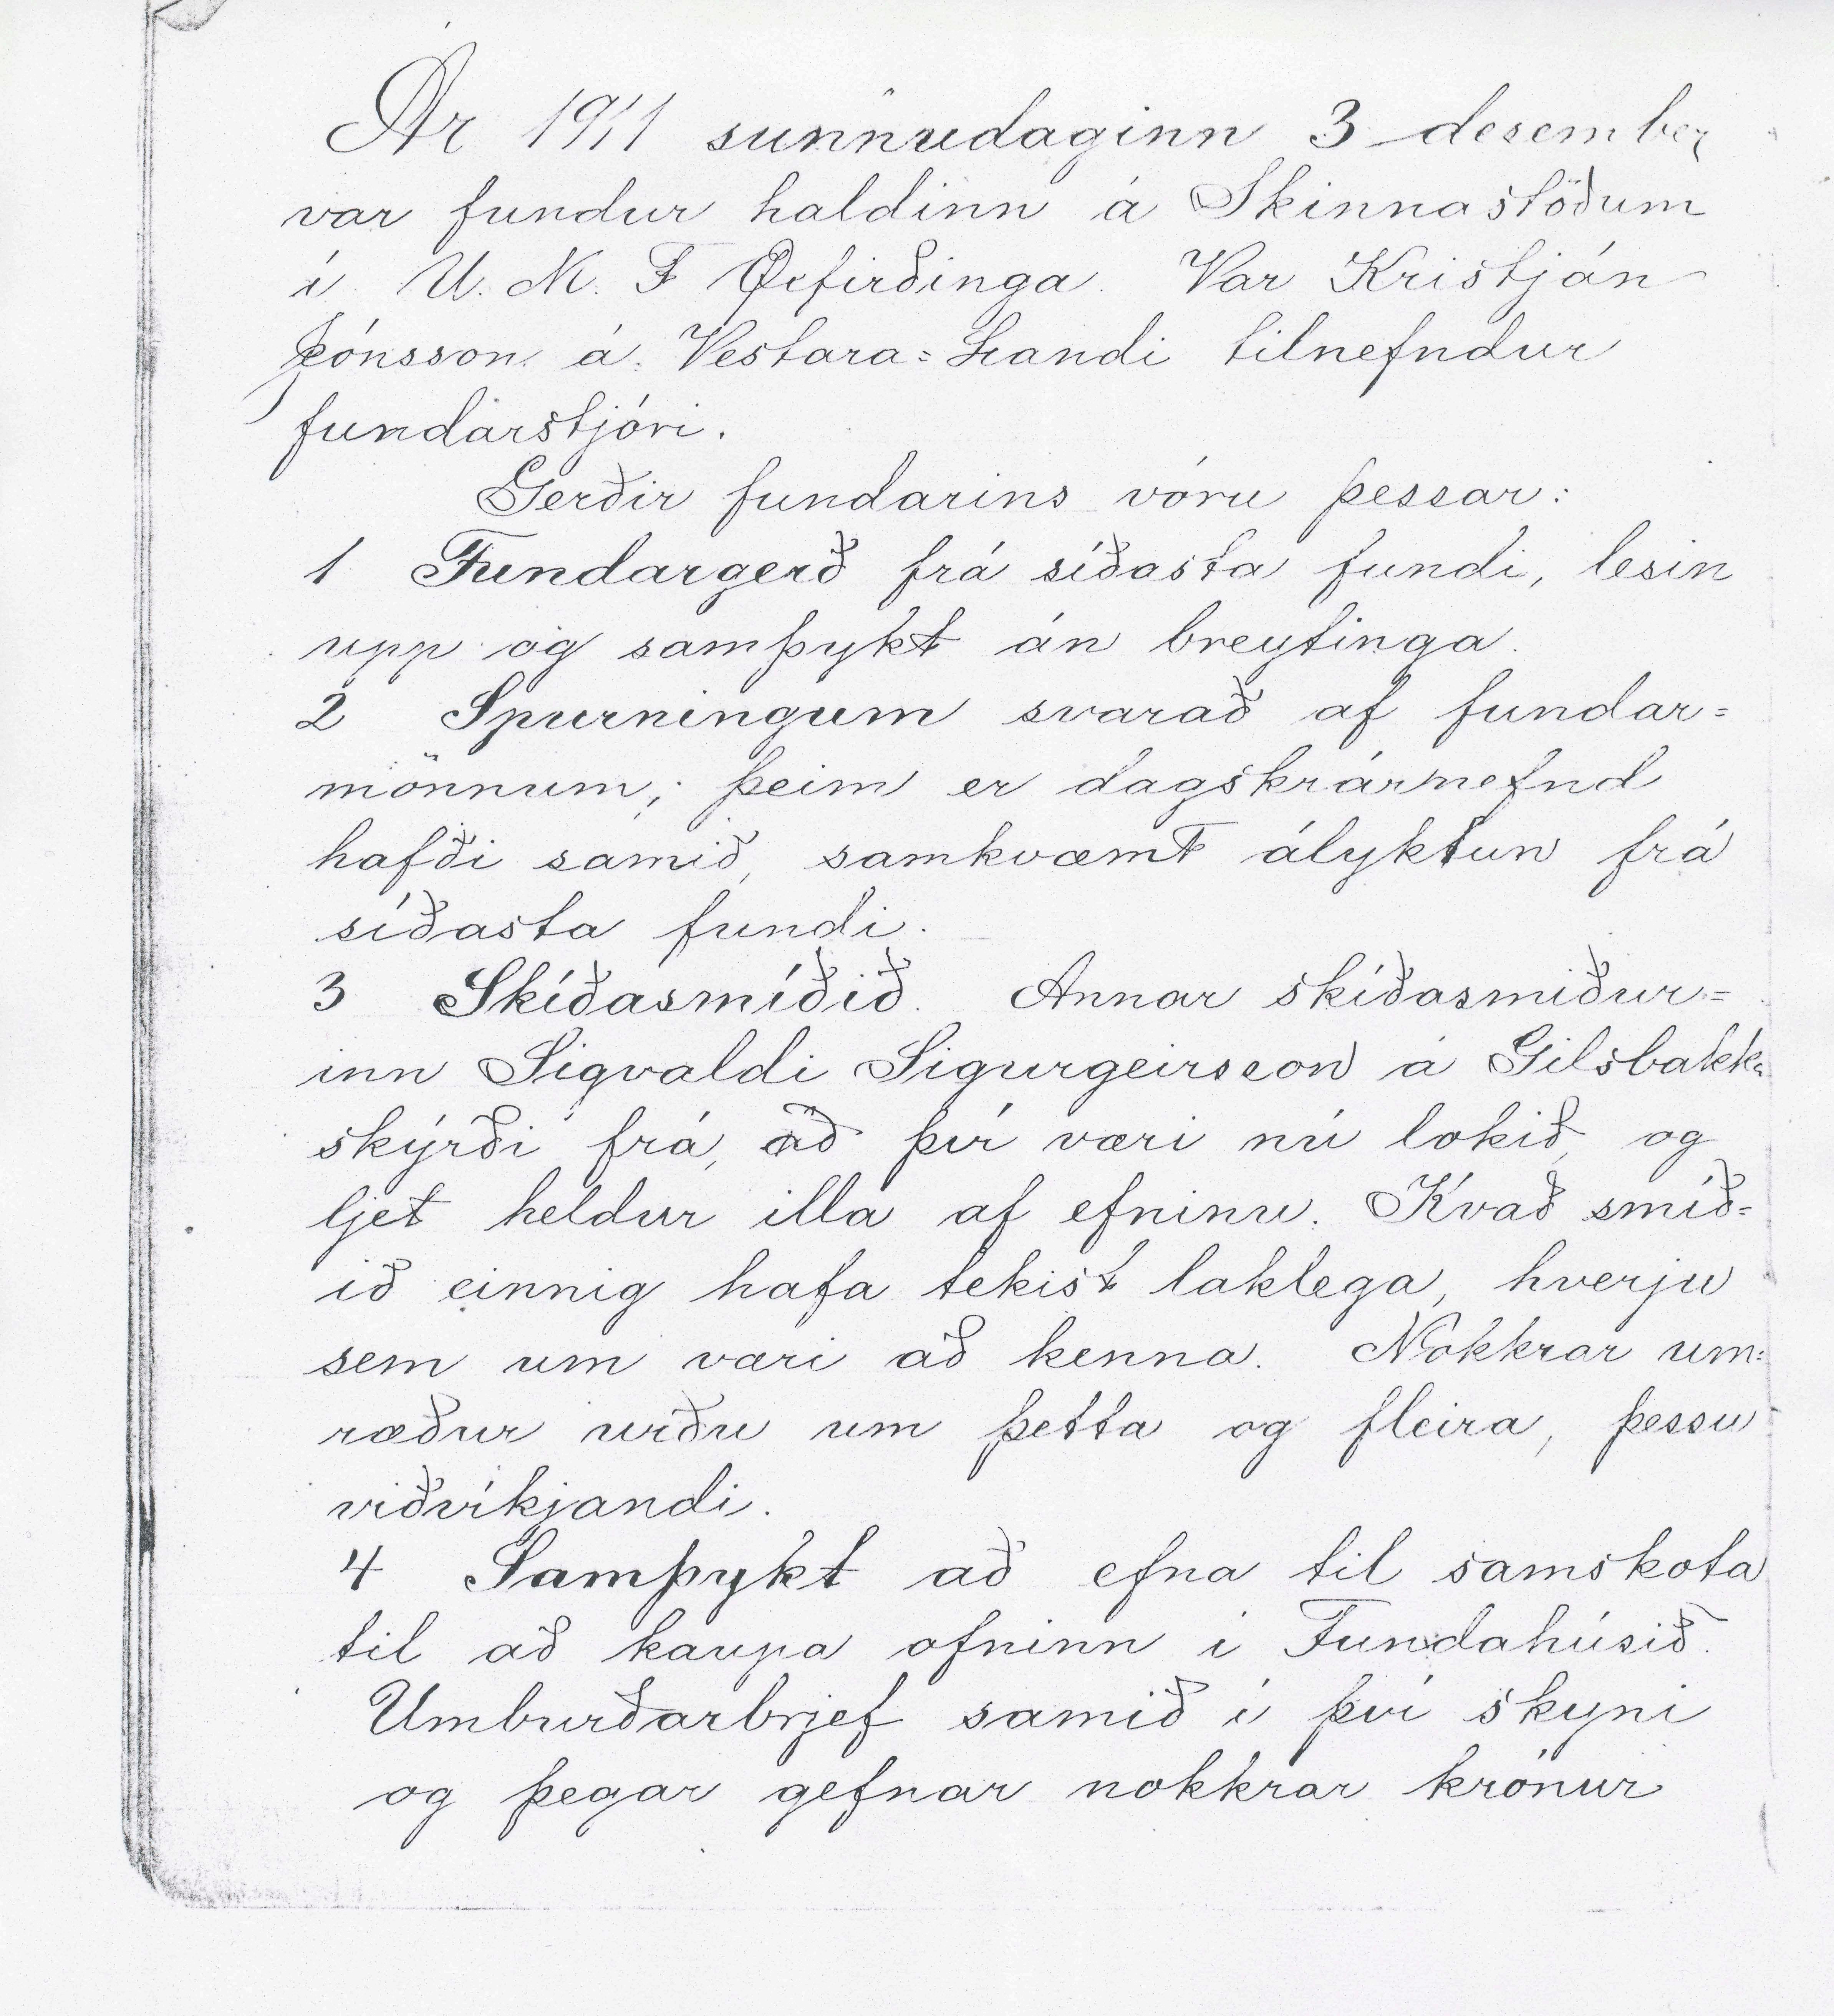 Ár 1911 sunnudaginn 3 desember
var fundur haldinn á Skinnastöðum
í U. M. F Öxfirðinga. Var Kristján
Jónsson á Vestara=Landi tilnefndur
fundarstjóri.
Gerðir fundarins vóru þessar:
1 Fundargerð frá síðasta fundi, lesin
upp og samþykt án breytinga.
2 Spurningum svarað af fundar=
mönnum; þeim er dagskrárnefnd
hafði samið, samkvæmt ályktun frá
síðasta fundi.
3 Skíðasmíðið. Annar skíðasmiður=
inn Sigvaldi Sigurgeirsson á Gilsbakka
skýrði frá, að því væri nú lokið, og
ljet heldur illa af efninu. Kvað smíð=
ið einnig hafa tekist laklega, hverju
sem um væri að kenna. Nokkrar um=
ræður urðu um þetta og fleira, þessu
viðvíkjandi.
4 Samþykt að efna til samskota
til að kaupa ofninn í Fundahúsið.
Umburðarbrjef samið í því skyni
og þegar gefnar nokkrar krónur